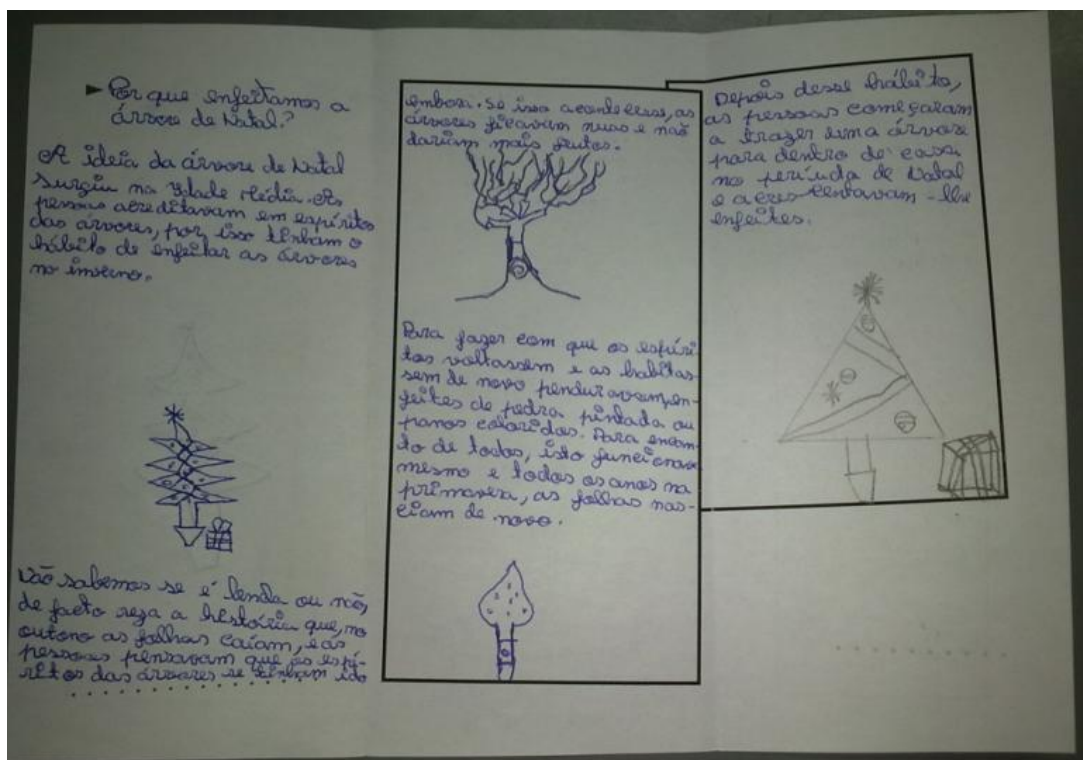 Por que enfeitamos a
árvore de Natal?
A ideia da árvore de Natal
surgiu na Idade Média. As
pessoas acreditavam em espíritos
das árvores, por isso tinham o
hábito de enfeitar as árvores
no inverno.
Não sabemos se é lenda ou não,
de facto reza a história que, no
outono as folhas caíam, e as
pessoas pensavam que os espí-
ritos das árvores se tinham ido
embora. Se isso acontecesse, as
árvores ficavam nuas e não
dariam mais frutos.
Para fazer com que os espíri-
tos voltassem e as habitas-
sem de novo penduravam en-
feites de pedra pintada ou
panos coloridos. Para encan-
to de todos, isto funcionava
mesmo e todos os anos na
primavera, as folhas nas-
ciam de novo.
Depois desse hábito,
as pessoas começaram
a trazer uma árvore
para dentro de casa
no período de Natal
e acrescentavam-lhe
enfeites.